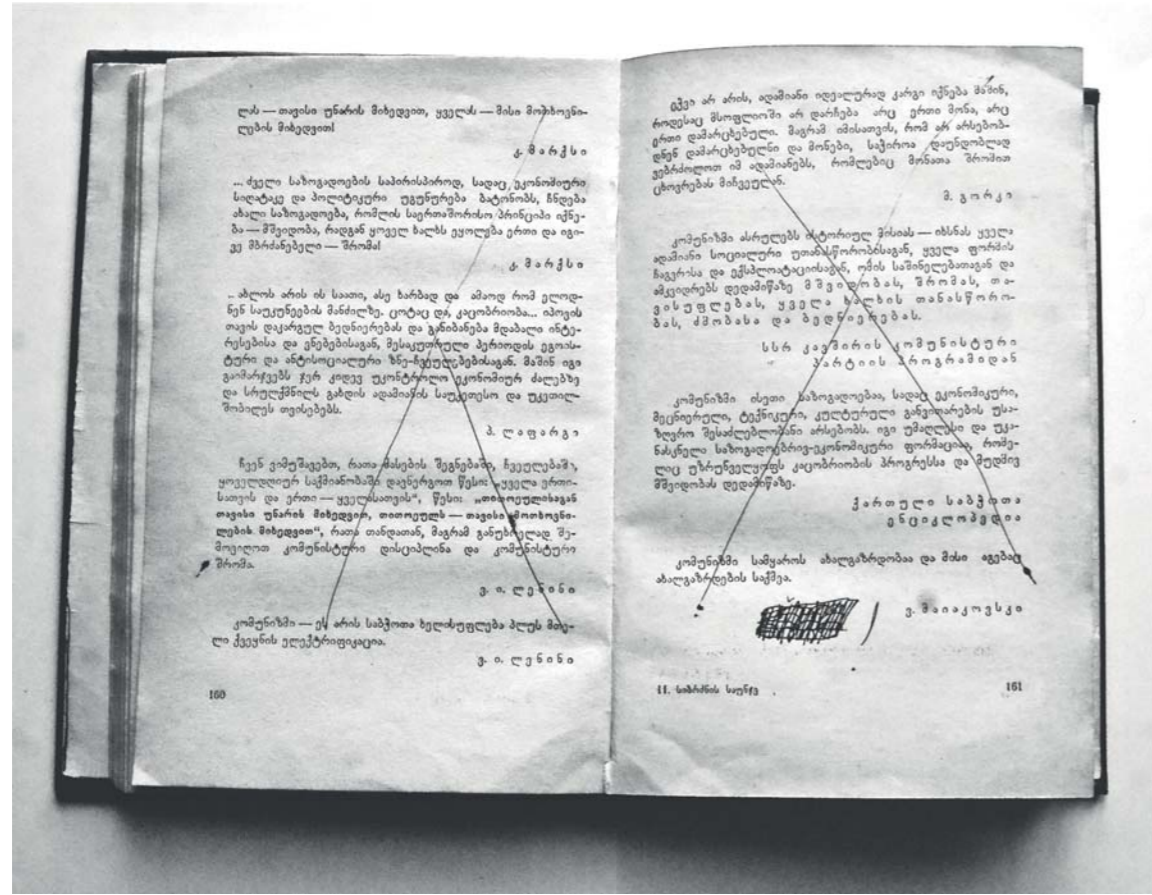 ლას — თავისი უნარის მიხედვით, ყველას — მისი მოთხოვნი-
ლების მიხედვით!
კ. მარქსი
... ძველი საზოგადოების საპირისპიროდ, სადაც ეკონომიური
სიღატაკე და პოლიტიკური უგუნურება ბატონობს, ჩნდება
ახალი საზოგადოება, რომლის საერთაშორისო პრინციპი იქნე-
ბა — მშვიდობა, რადგან ყოველ ხალხს ეყოლება ერთი და იგი-
ვე მბრძანებელი — შრომა!
კ. მარქსი
... ახლოს არის ის საათი, ასე ხარბად და ამაოდ რომ ელოდ-
ნენ საუკუნეების მანძილზე. ცოტაც და, კაცობრიობა... იპოვის
თავის დაკარგულ ბედნიერებას და განიბანება მდაბალი ინტე-
რესებისა და ვნებებისაგან, მესაკუთრული პერიოდის ეგოის-
ტური და ანტისოციალური ზნე-ჩვეულებებისაგან. მაშინ იგი
გაიმარჯვებს ჯერ კიდევ უკონტროლო ეკონომიურ ძალებზე
და სრულქმნილს გახდის ადამიანის საუკეთესო და უკეთილ-
შობილეს თვისებებს.
პ. ლაფარგი
ჩვენ ვიმუშავებთ, რათა მასების შეგნებაში, ჩვეულებაში,
ყოველდღიურ საქმიანობაში დავნერგოთ წესი: „ყველა ერთი-
სათვის და ერთი — ყველასათვის“, წესი: „თითოეულისაგან
თავისი უნარის მიხედვით, თითოეულს — თავისი მოთხოვნი-
ლების მიხედვით“, რათა თანდათან, მაგრამ განუხრელად შე-
მოვიღოთ კომუნისტური დისციპლინა და კომუნისტური
შრომა.
ვ. ი. ლენინი
კომუნიზმი — ეს არის საბჭოთა ხელისუფლება პლუს მთე-
ლი ქვეყნის ელექტრიფიკაცია.
ვ. ი. ლენინი
160
ეჭვი არ არის, ადამიანი იდეალურად კარგი იქნება მაშინ,
როდესაც მსოფლიოში არ დარჩება არც ერთი მონა, არც
ერთი დამარცხებული. მაგრამ იმისათვის, რომ არ არსებობ-
დნენ დამარცხებულნი და მონები, საჭიროა დაუნდობლად
ვებრძოლოთ იმ ადამიანებს, რომლებიც მონათა შრომით
ცხოვრებას მიჩვეულან.
მ. გორკი
კომუნიზმი ასრულებს ისტორიულ მისიას — იხსნას ყველა
ადამიანი სოციალური უთანასწორობისაგან, ყველა ფორმის
ჩაგვრისა და ექსპლოატაციისაგან, ომის საშინელებათაგან და
ამკვიდრებს დედამიწაზე მშვიდობას, შრომას, თა-
ვისუფლებას, ყველა ხალხის თანასწორო-
ბას, ძმობასა და ბედნიერებას.
სსრ კავშირის კომუნისტური
პარტიის პროგრამიდან
კომუნიზმი ისეთი საზოგადოებაა, სადაც ეკონომიკური,
მეცნიერული, ტექნიკური, კულტურული განვითარების უსა-
ზღვრო შესაძლებლობანი არსებობს. იგი უმაღლესი და უკა-
ნასკნელი საზოგადოებრივ-ეკონომიკური ფორმაციაა, რომე-
ლიც უზრუნველყოფს კაცობრიობის პროგრესსა და მუდმივ
მშვიდობას დედამიწაზე.
ქართული საბჭოთა
ენციკლოპედია
კომუნიზმი სამყაროს ახალგაზრდობაა და მისი აგებაც
ახალგაზრდების საქმეა.
ვ. მაიაკოვსკი
11. სიბრძნის საუნჯე
161